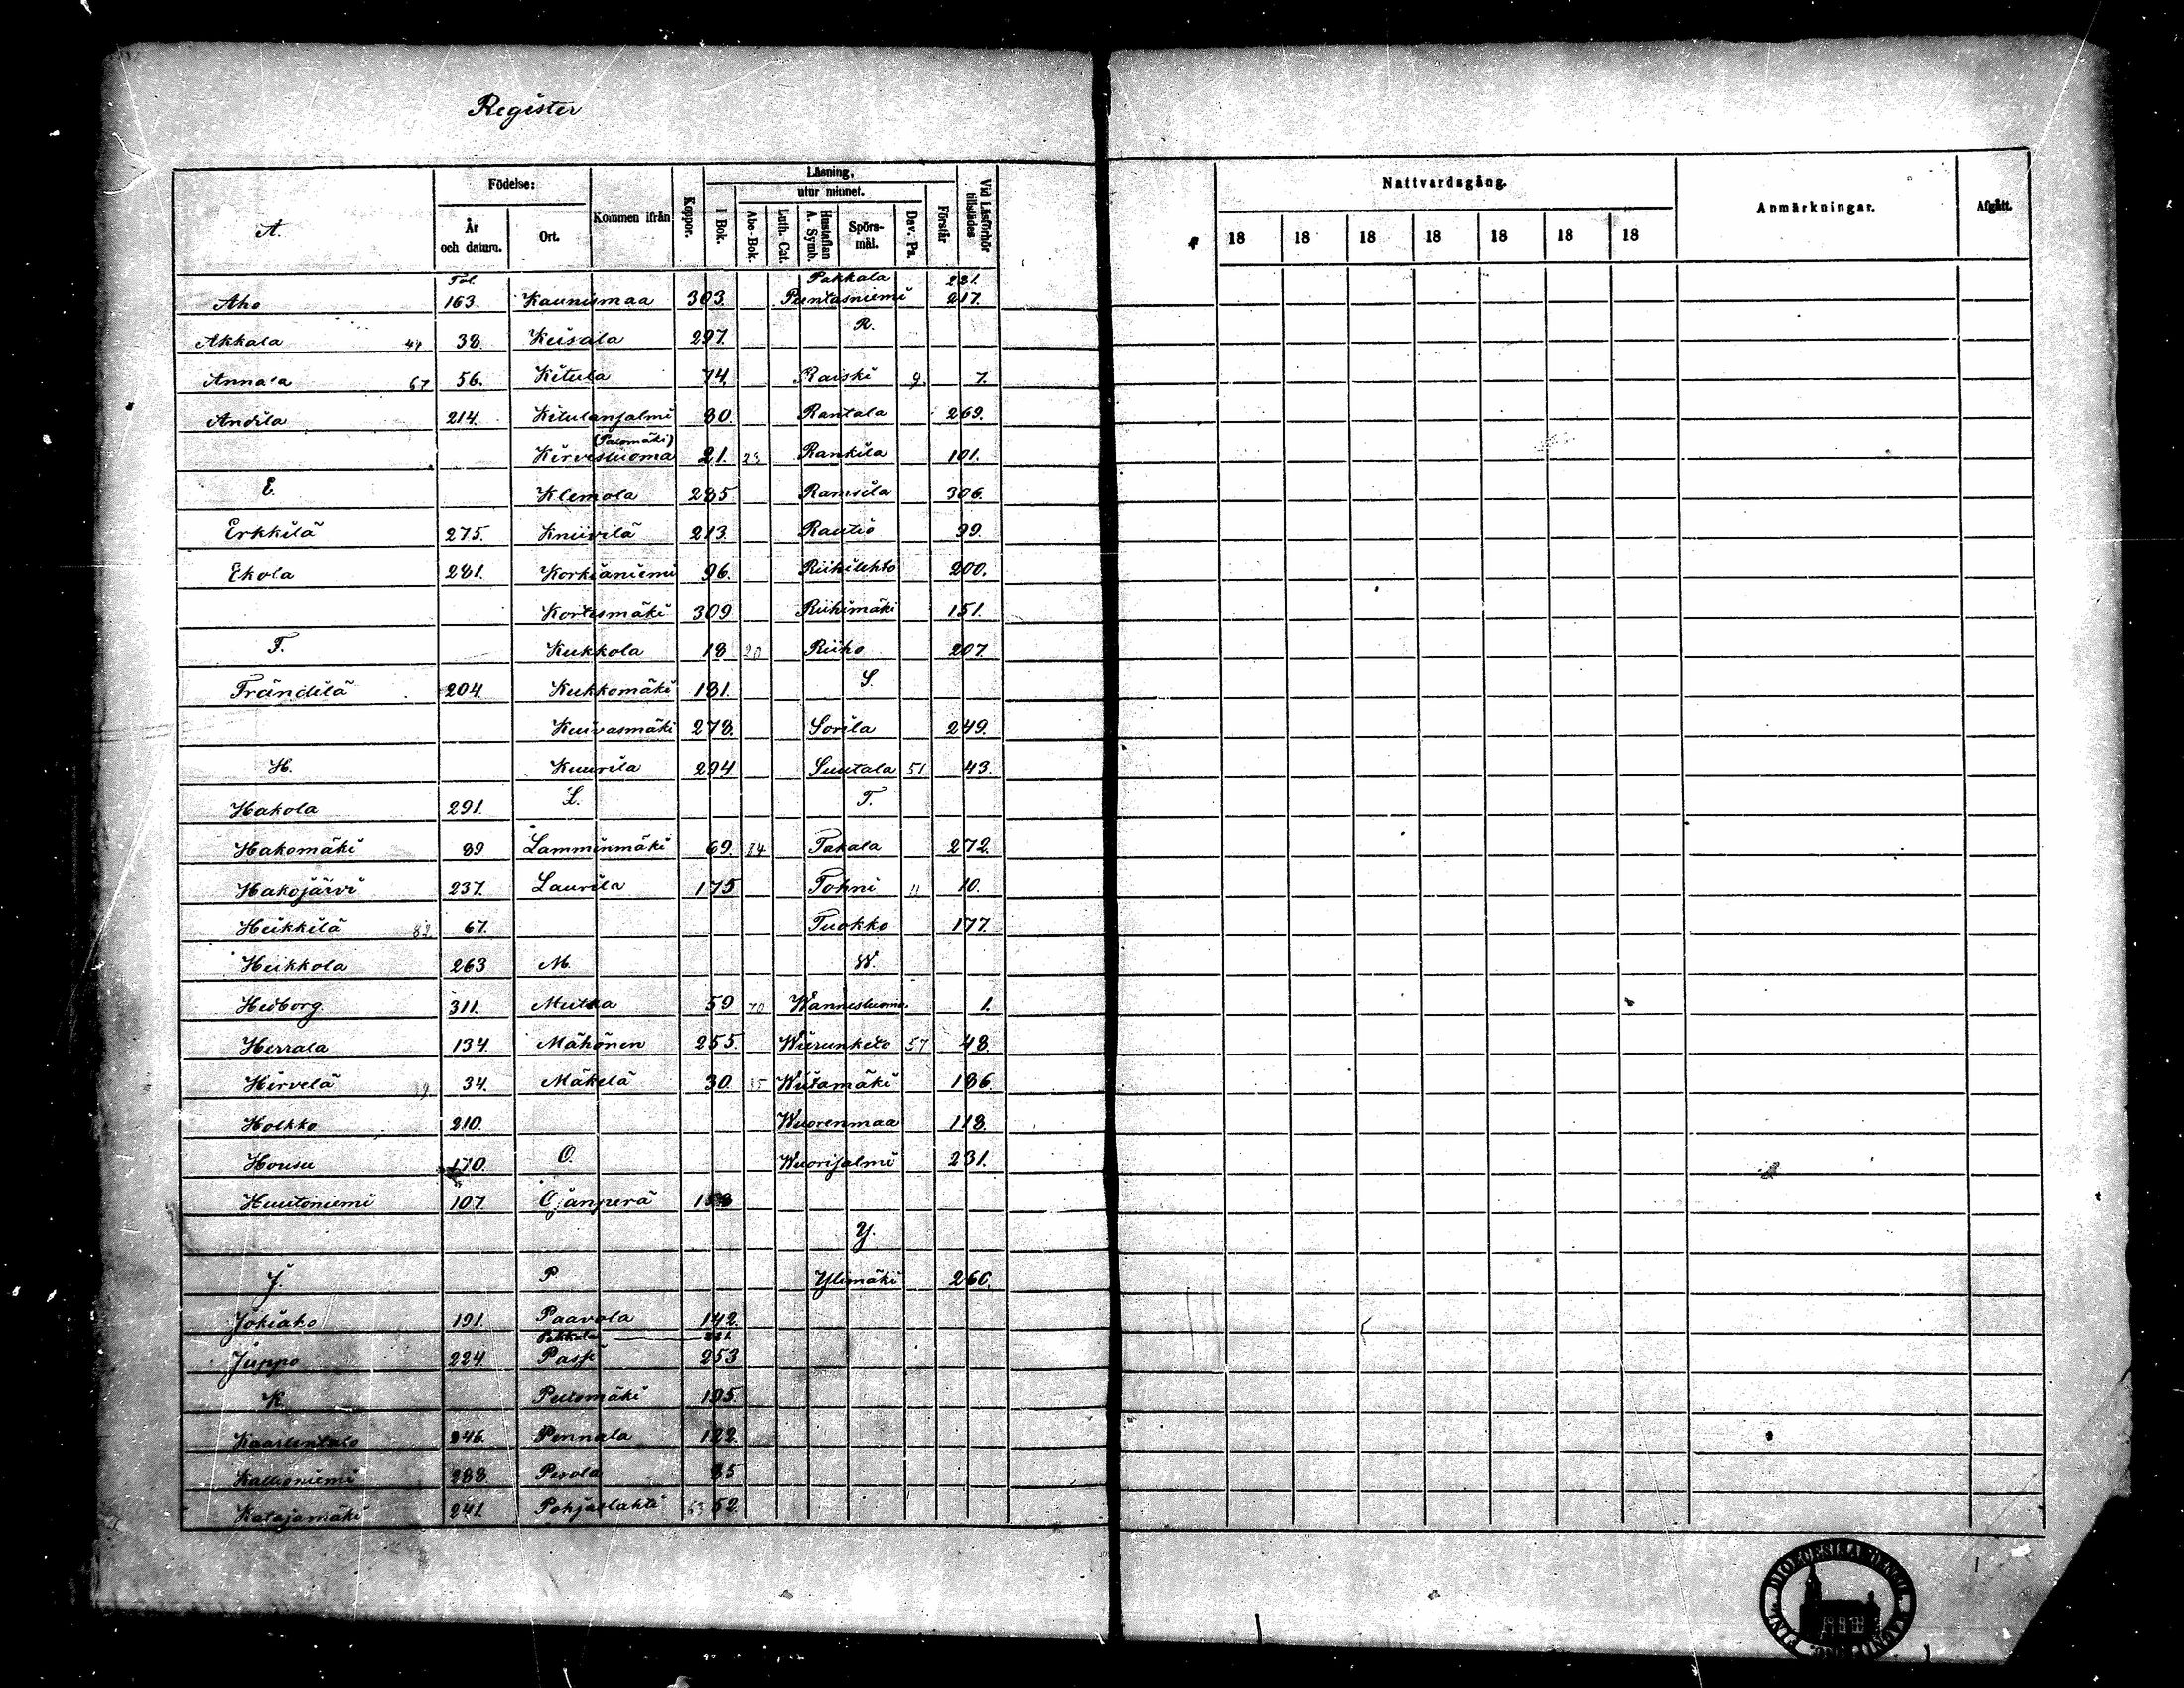 Register
A.
Födelse:
År och datum.
Ort.
Kommen ifrån
Koppor.
Läsning,
I Bok.
utur minnet.
Abc-Bok.
Luth. Cat.
Hustaflan A. Symb.
Spörs-mål.
Dav. Ps.
Förstår
Vid Läsförhör tillstädes
Nattvardsgång.
18 18 18 18 18 18 18
Anmärkningar.
Afgått.
Fol. Pakkala 221.
Aho 163. Kaunismaa 303. Puntasniemi 217.
Akkala 44 38. Keisala 297. R.
Annala 67 56. Kitula 74. Raiski 9. 7.
Andila 214. Kitulansalmi 80. Rantala 269.
(Palomäki)
Kirvesluoma 21. 23 Rankila 101.
E. Klemola 285 Ramsila 306.
Erkkilä 275. Kniivilä 213. Rautio 99.
Ekola 281. Korkianiemi 96. Riihilehto 200.
Kortesmäki 309 Riihimäki 151.
F. Kukkola 18 20 Riiho 207.
Frändilä 204. Kukkomäki 181. S.
Kuivasmäki 278. Sorila 249.
H. Kuurila 294. Suutala 51 43.
Hakola 291. L. T.
Hakomäki 89 Lamminmäki 69. 84 Takala 272.
Hakojärvi 237. Laurila 175 Tohni 11 10.
Heikkilä 82 67. Tuokko 177.
Heikkola 263 M. W.
Hedborg 311. Mutka 59 70 Wannesluoma 1.
Herrala 134. Mähönen 255. Wiirunketo 57 48.
Hirvelä 39 34. Mäkelä 30 35 Wiitamäki 186.
Holkko 210. Wuorenmaa 118.
Housu 170. O. Wuorisalmi 231.
Huutoniemi 107. Ojanperä
Y.
J. P Ylimäki 260.
Jokiaho 191. Paavola 142.
Pakkala 221.
Juppo 224. Passi 253
K Peltomäki 195.
Kaarlentalo 246. Pennala 122.
Kallioniemi 288. Perola 85
Katajamäki 241. Pohjaslahti 63 52.